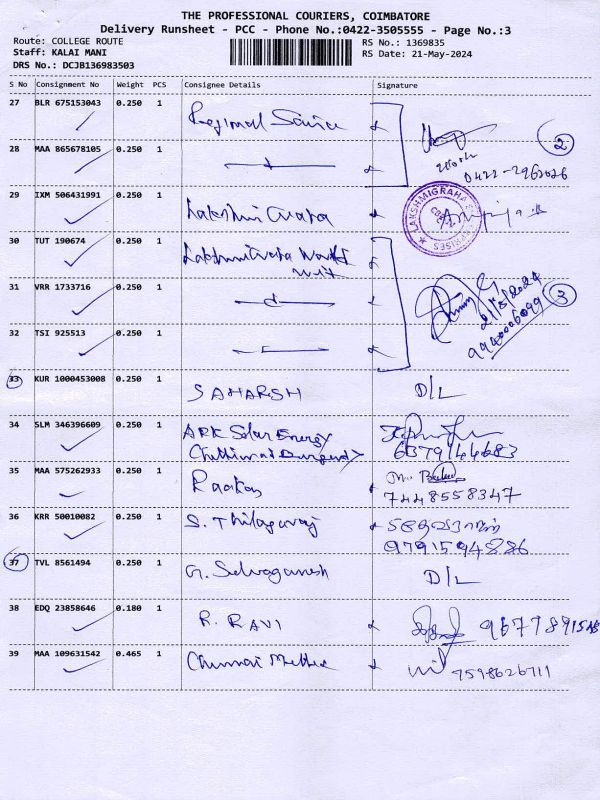 THE PROFESSIONAL COURIERS, COIMBATORE
Delivery Runsheet - PCC - Phone No.:0422-3505555 - Page No.:3
Route: COLLEGE ROUTE
RS No.: 1369835
Staff: KALAI MANI
RS Date: 21-May-2024
DRS No.: DCJB136983503
S No Consignment No Weight PCS Consignee Details Signature
27 BLR 675153043 0.250 1 Regional
28 MAA 865678105 0.250 1
2
0422-2962026
29 IXM 506431991 0.250 1
LAKSHMIGRAHA
30 TUT 190674 0.250 1
31 VRR 1733716 0.250 1
21/5/2024
3
9940006099
32 TSI 925513 0.250 1
33 KUR 1000453008 0.250 1 SAHARSH D/L
34 SLM 346396609 0.250 1 ARK Solar Energy
6379144683
35 MAA 575262933 0.250 1
7448558347
36 KRR 50010082 0.250 1 S. Thilagaraj
9791594886
37 TVL 8561494 0.250 1 G. Selvaganesh D/L
38 EDQ 23858646 0.180 1 R. RAVI
39 MAA 109631542 0.465 1 7598626711